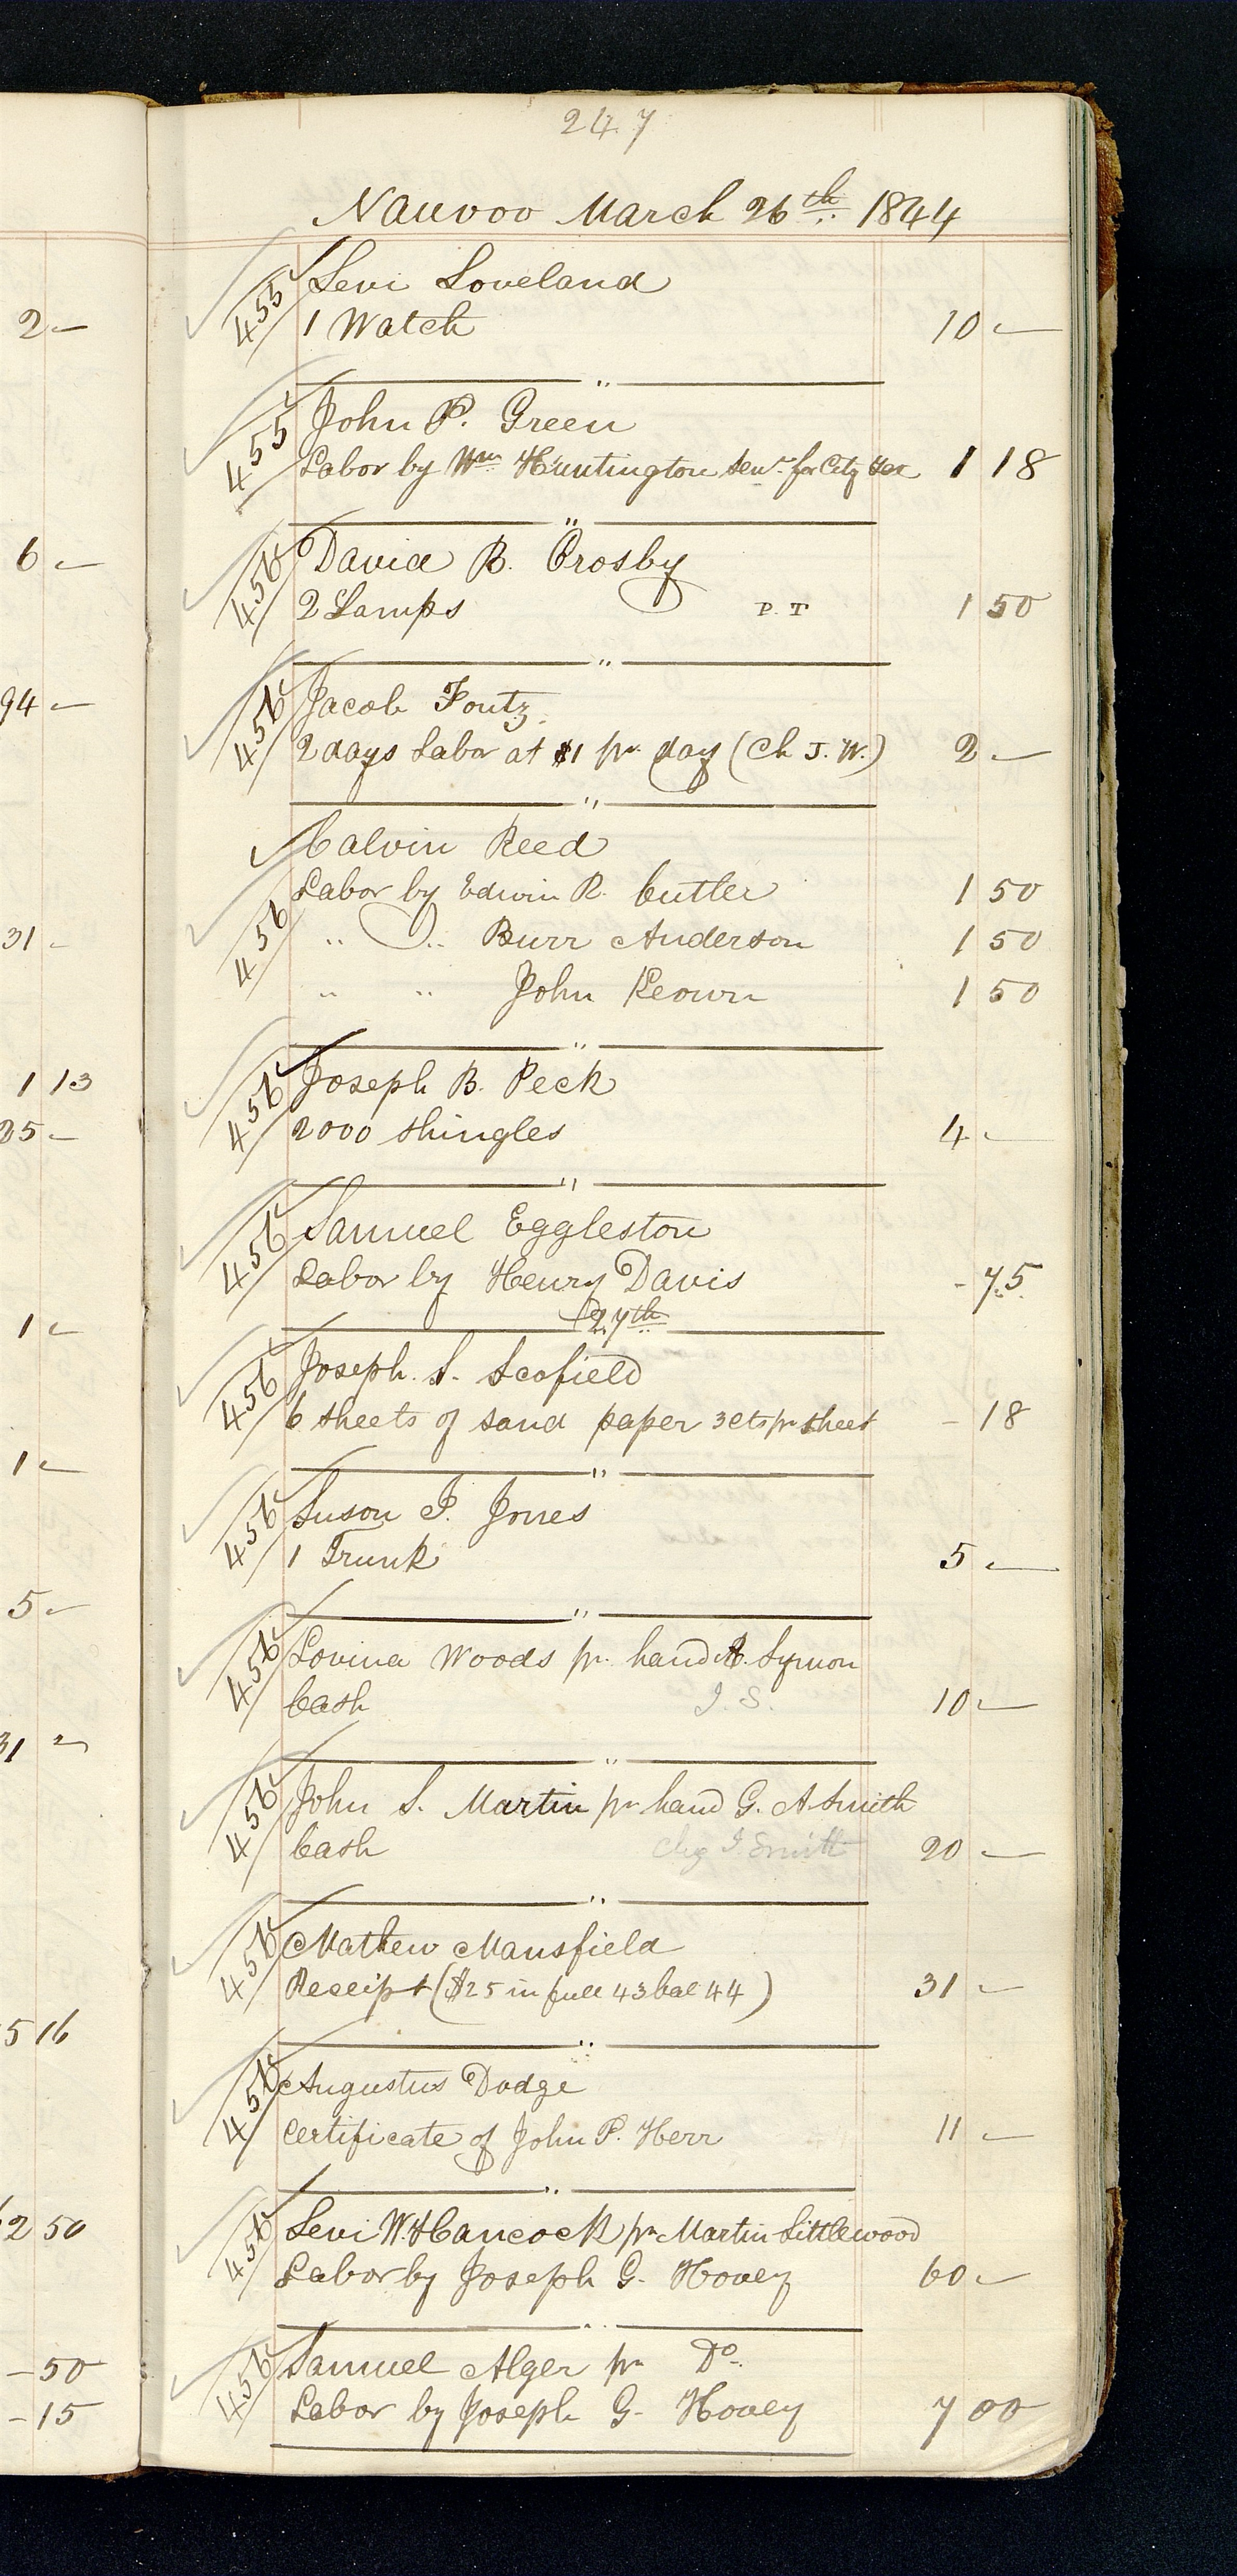 2 -
6 -
94 -
31 -
1 13
25 -
1 -
1 -
5 -
31 -
5 16
2 50
- 50
- 15
247
Nauvoo March 26th 1844
455 Levi Loveland
1 Watch 10 -
"
455 John P. Green
Labor by Wm Huntington Senr for City tax 1 18
"
456 David B. Crosby
2 Lamps P. T 1 50
"
456 Jacob Foutz
2 days Labor at $1 pr day (Ch J. W.) 2 -
"
Calvin Reed
Labor by Edwin R. Cutler 1 50
456 " " Burr Anderson 1 50
" " John Keown 1 50
"
456 Joseph B. Peck
2000 Shingles 4 -
"
456 Samuel Eggleston
Labor by Henry Davis - 75
27th
456 Joseph S. Scofield
6 sheets of sand paper 3 cts pr sheet - 18
"
456 Suson J. Jones
1 Trunk 5 -
"
456 Lovina Woods pr hand A. Lymon
Cash J. S. 10 -
"
456 John S. Martin pr hand G. A. Smith
Cash Chg J. Smith 20 -
"
456 Mathew Mansfield
Receipt ($25 in full 43 bal 44) 31 -
"
456 Augustus Dodge
Certificate of John P. Herr 11 -
"
456 Levi W. Hancock pr Martin Littlewood
Labor by Joseph G. Hovey 60 -
"
456 Samuel Alger pr Do
Labor by Joseph G. Hovey 7 00